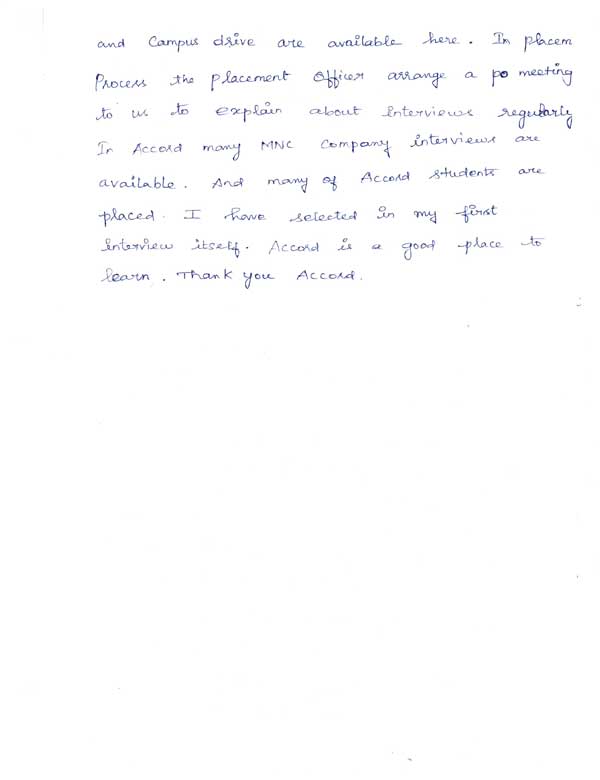 and Campus drive are available here. In placem
Process the placement Officer arrange a po meeting
to us to explain about interviews regularly
In Accord many MNC Company interviews are
available. And many of Accord students are
placed. I have selected in my first
interview itself. Accord is a good place to
learn. Thank you Accord.